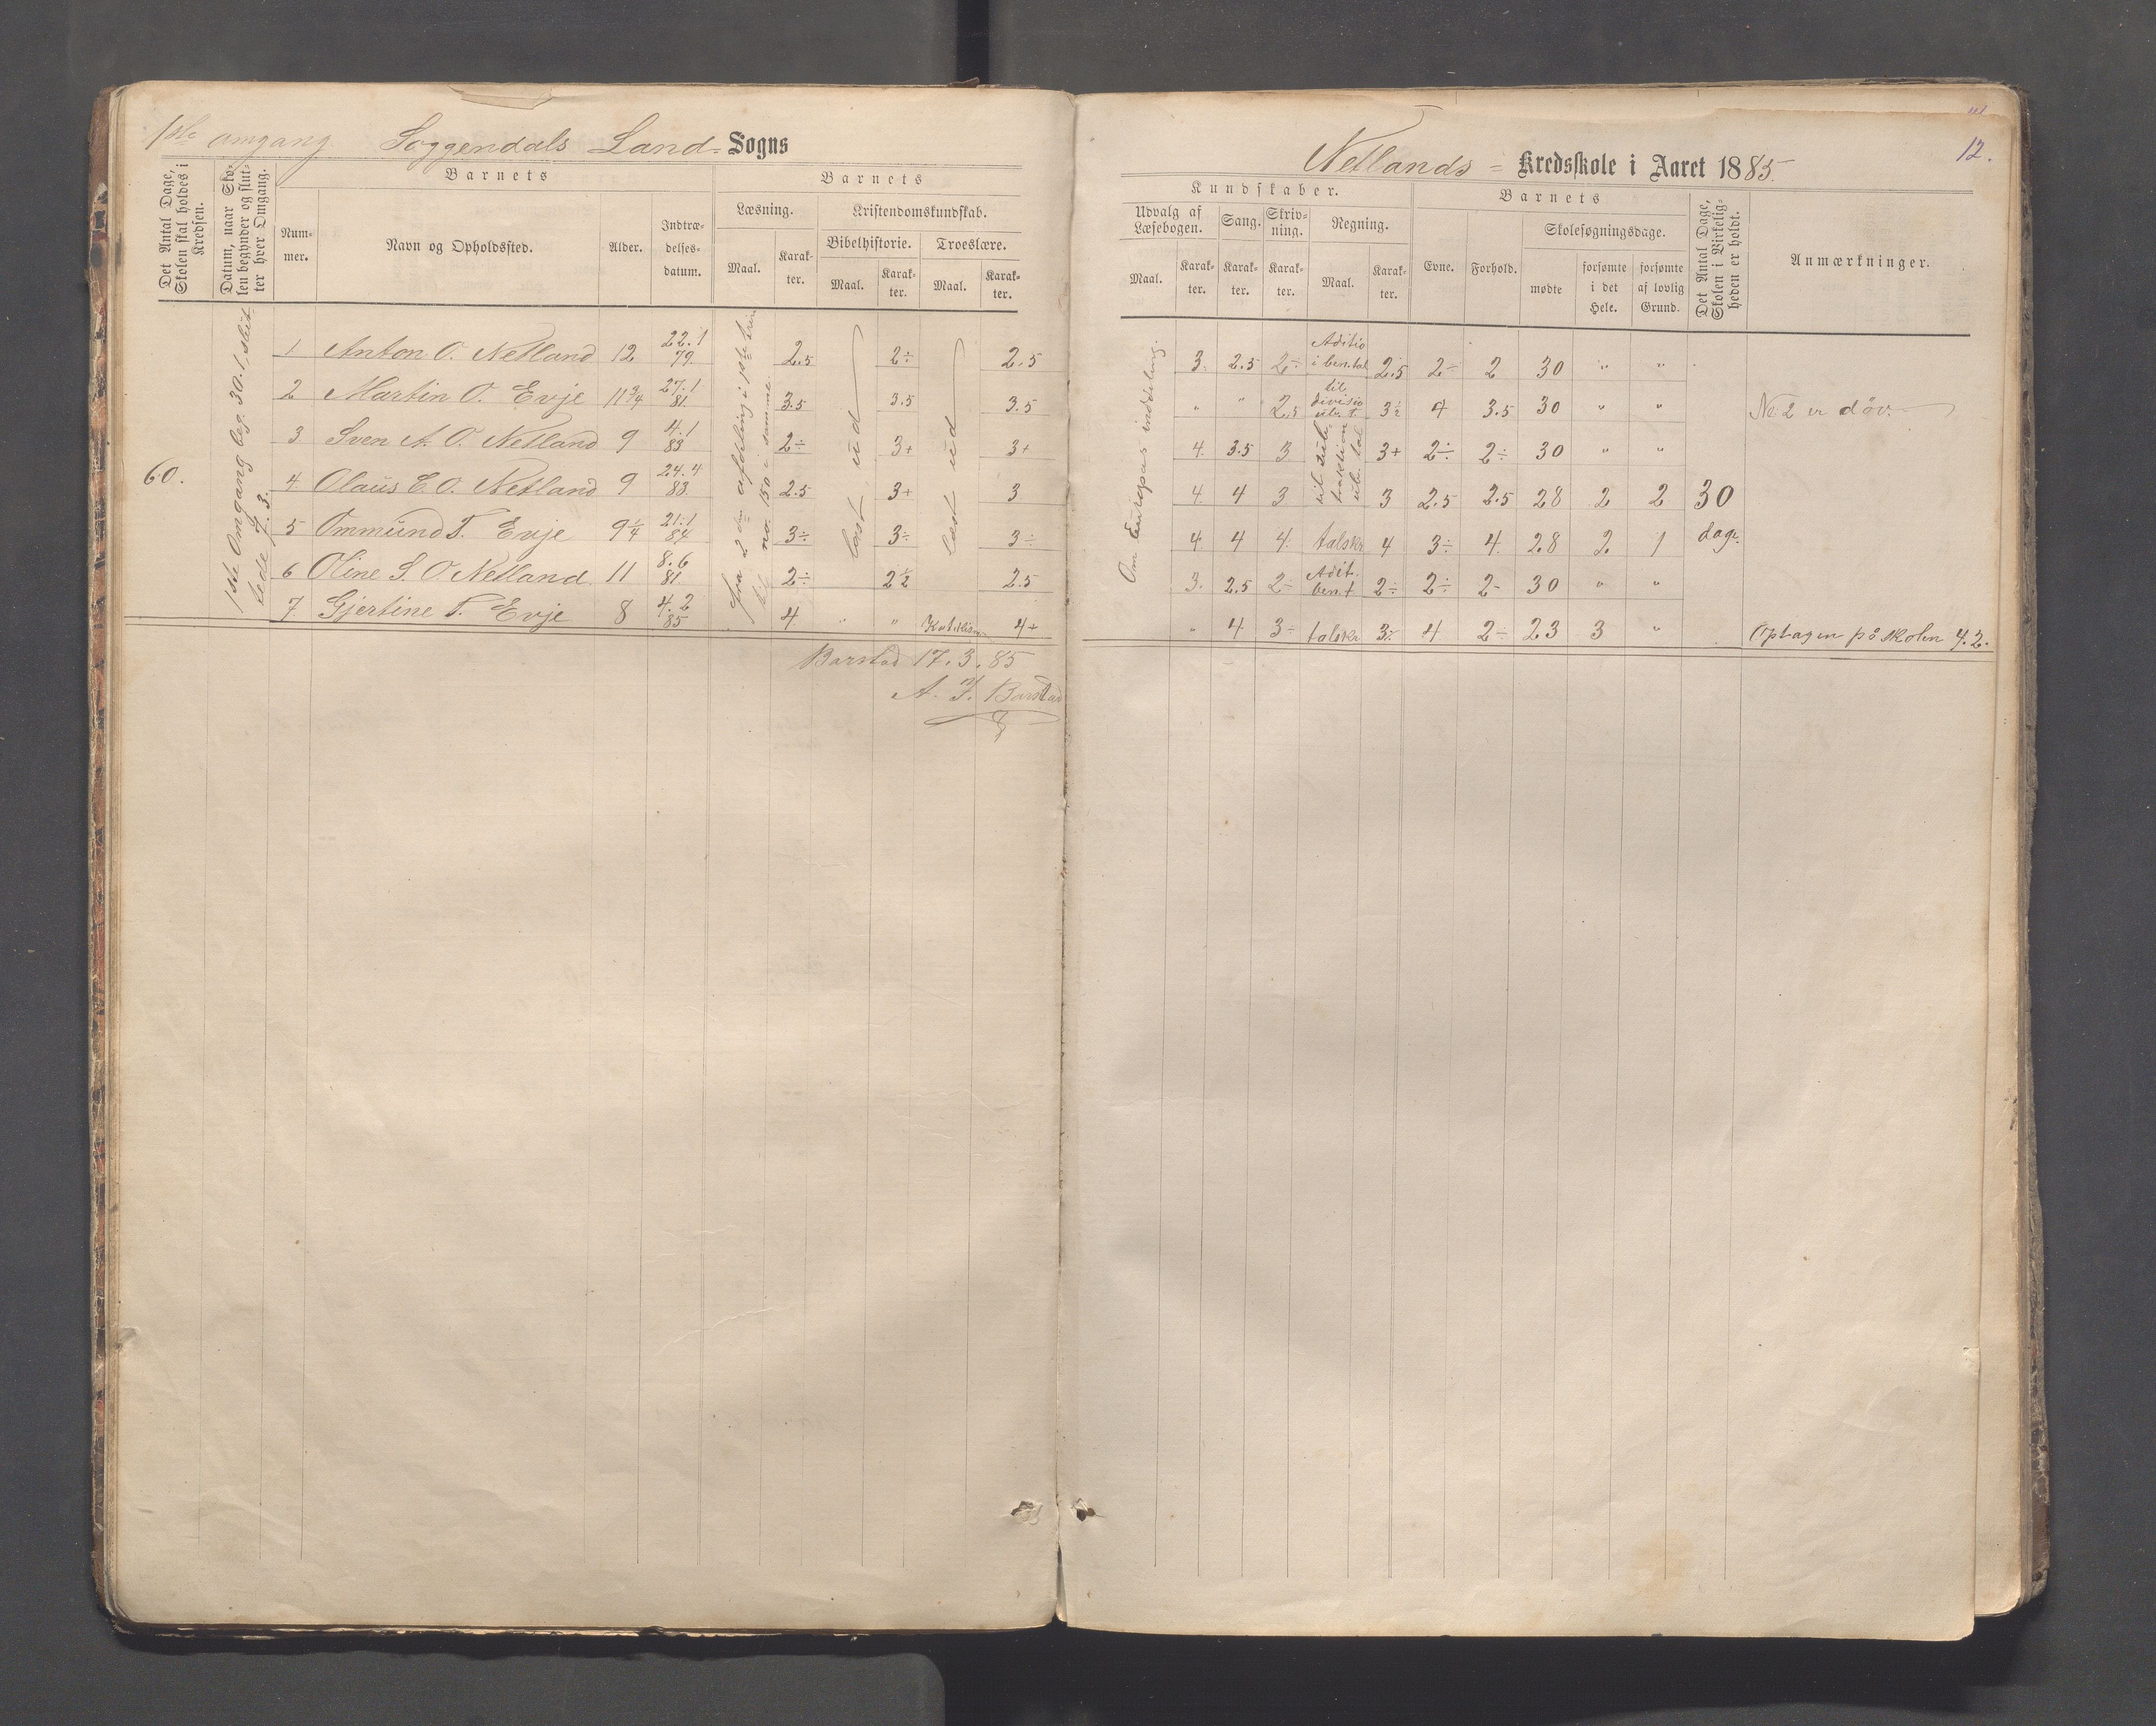 1ste omgang Soggendals Land- Sogns
Det Antal Dage, Skolen skal holdes i Kredsen.
Datum, naar Skolen begynder og slutter hver Omgang.
Barnets
Nummer.
Navn og Opholdssted.
Alder.
Indtrædelsesdatum.
Barnets
Læsning.
Maal.
Karakter.
Kristendomskundskab.
Bibelhistorie.
Maal.
Karakter.
Troeslære.
Maal.
Karakter.
60.
1ste Omgang beg. 30.1, slut-
tede 7.3.
fra 2den afdeling i 1ste trin
til no. 150 i samme.
læst ud
læst ud
1 Anton O. Netland 12 22.1 79. 2.5 2÷ 2.5
2 Martin O. Evje 11 3/4 27.1 81. 3.5 3.5 3.5
3 Sven A. O. Netland 9 4.1 83 2÷ 3+ 3+
4 Olaus E. O. Netland 9 24.4 83. 2.5 3+ 3
5 Ommund T. Evje 9 1/4 21.1 84 3÷ 3÷ 3÷
6 Oline S. O. Netland 11 8.6 81 2÷ 2 1/2 2.5
7 Gjertine T. Evje 8 4.2 85 4 " " 4+
Barstad 17.3.85
A. T. Barstad
12.
Netlands = Kredsskole i Aaret 1885.
Kundskaber.
Udvalg af Læsebogen.
Maal.
Karakter.
Sang.
Karakter.
Skrivning.
Karakter.
Regning.
Maal.
Karakter.
Barnets
Evne.
Forhold.
Skolesøgningsdage.
mødte
forsømte i det Hele.
forsømte af lovlig Grund.
Det Antal Dage, Skolen i Virkeligheden er holdt.
Anmærkninger.
Om Europas inddeling.
3. 2.5 2÷ Aditio i ben.tal 2.5 2÷ 2 30 " "
" " 2.5 til divisio ub. t. 3÷ 4 3.5 30 " " No 2 er døv.
4. 3.5 3 3+ 2÷ 2÷ 30 " "
4. 4 3 3 2.5 2.5 28 2 2 30
4. 4 4. talskr 4 3÷ 4. 28 2. 1 dage.
3. 2.5 2÷ Adit. ben.t 2÷ 2÷ 2- 30 " "
" 4 3÷ talskr 3÷ 4 2÷ 23 3 " Optagen på skolen 4.2.